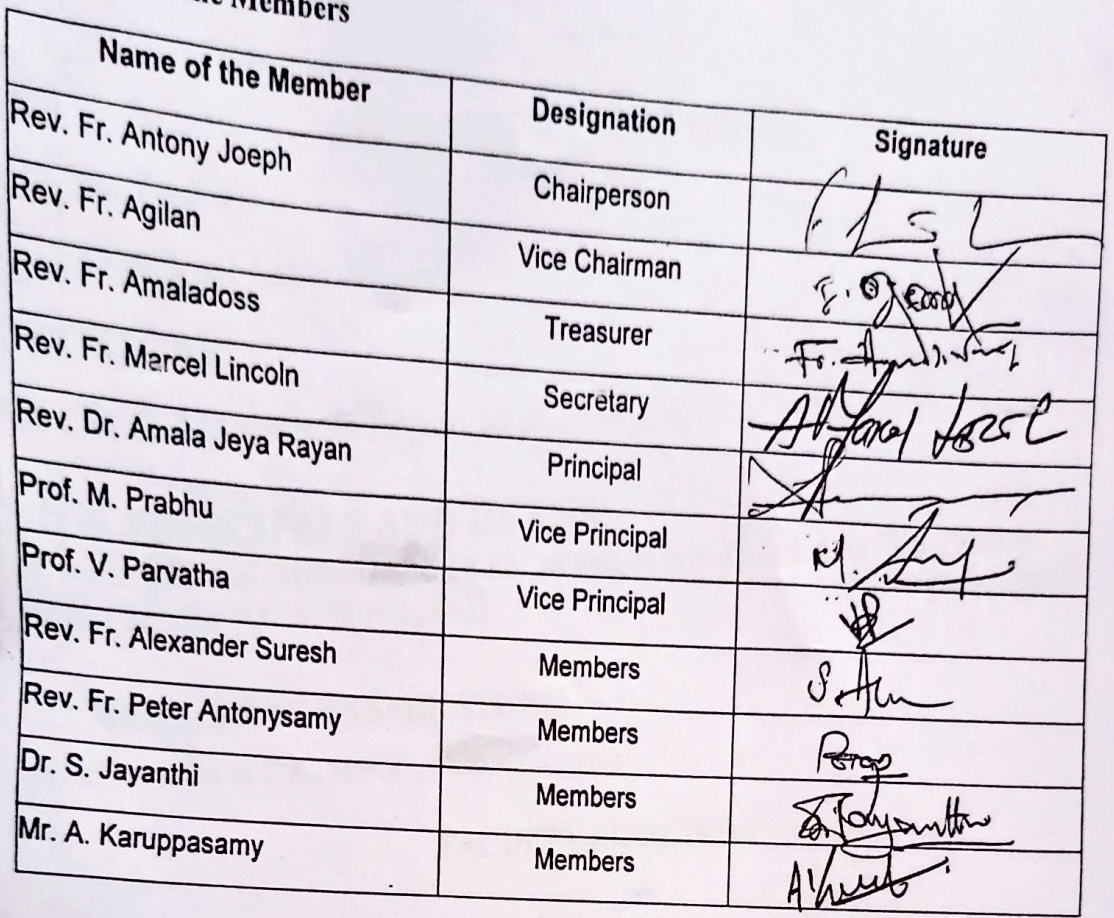 Members
Name of the Member Designation Signature
Rev. Fr. Antony Joeph Chairperson
Rev. Fr. Agilan Vice Chairman
Rev. Fr. Amaladoss Treasurer Fr.
Rev. Fr. Marcel Lincoln Secretary
Rev. Dr. Amala Jeya Rayan Principal
Prof. M. Prabhu Vice Principal M.
Prof. V. Parvatha Vice Principal
Rev. Fr. Alexander Suresh Members
Rev. Fr. Peter Antonysamy Members
Dr. S. Jayanthi Members
Mr. A. Karuppasamy Members